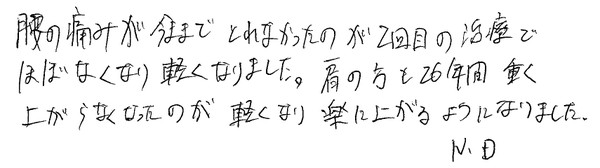 腰の痛みが今までとれなかったのが2回目の治療で
ほぼなくなり軽くなりました。肩の方も26年間重く
上がらなくなったのが軽くなり楽に上がるようになりました.
N.D